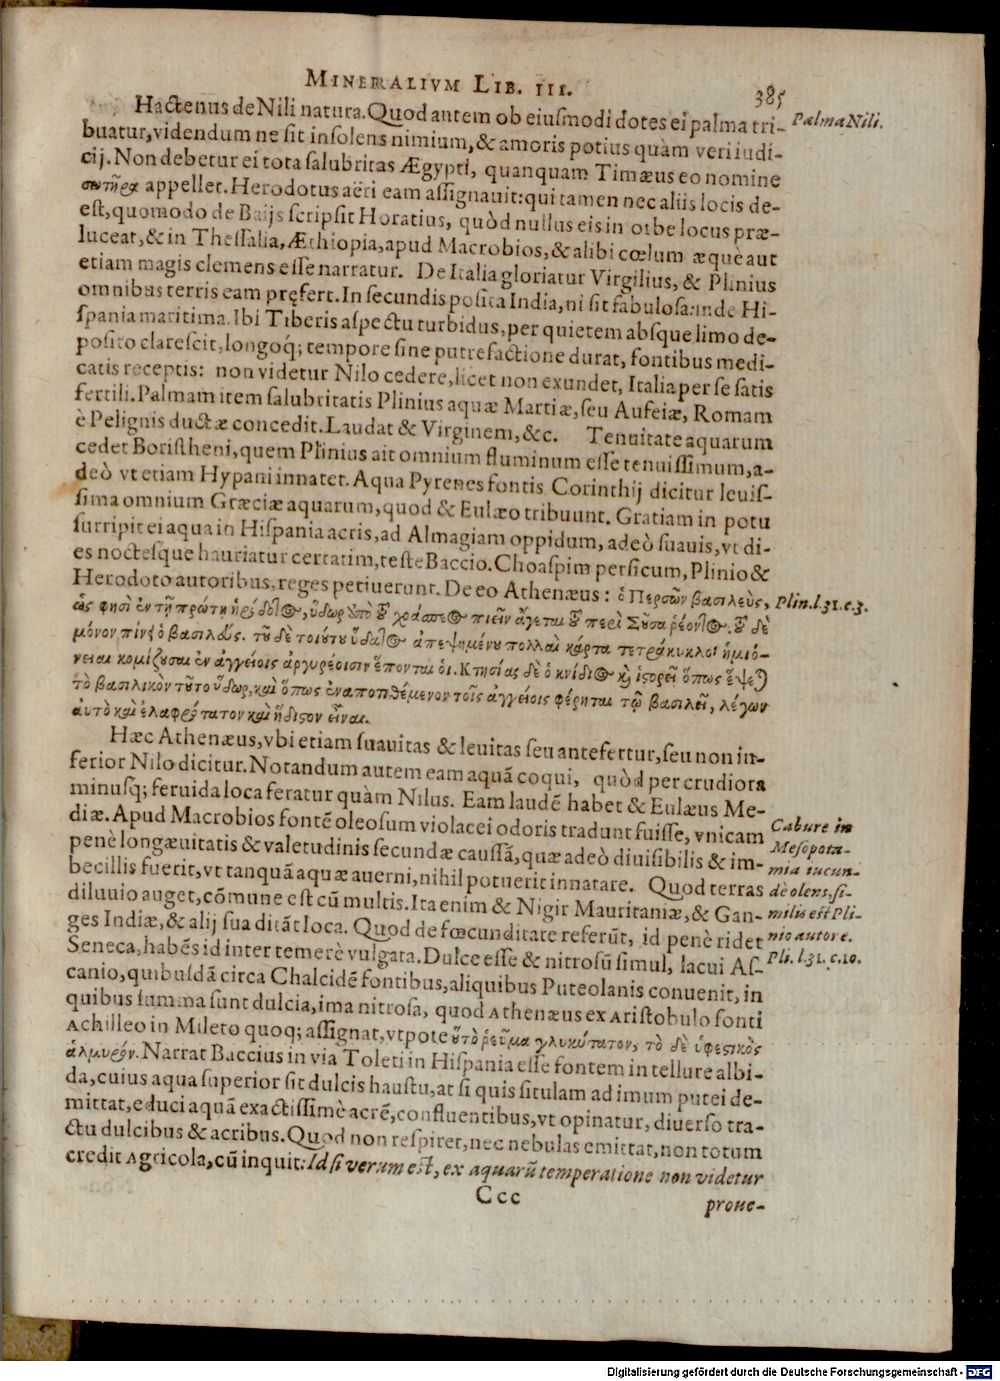 MINERALIVM LIB. III. 385
Hactenus de Nili natura. Quod autem ob eiusmodi dotes ei palma tri-
buatur, videndum ne sit insolens nimium, & amoris potius quàm veri iudi-
cij. Non debetur ei tota salubritas Ægypti, quanquam Timæus eo nomine
appellet. Herodotus aëri eam assignauit: qui tamen nec aliis locis de-
est, quomodo de Baijs scripsit Horatius, quòd nullus eis in orbe locus præ-
luceat, & in Thessalia, Æthiopia, apud Macrobios, & alibi cœlum æquè aut
etiam magis clemens esse narratur. De Italia gloriatur Virgilius, & Plinius
omnibus terris eam pręfert. In secundis posita India, ni sit fabulosa: inde Hi-
spania maritima. Ibi Tiberis aspectu turbidus, per quietem absque limo de-
posito clarescit, longoq; tempore sine putrefactione durat, fontibus medi-
catis receptis: non videtur Nilo cedere, licet non exundet, Italia per se satis
fertili. Palmam item salubritatis Plinius aquæ Martiæ, seu Aufeiæ, Romam
è Pelignis ductæ concedit. Laudat & Virginem, &c. Tenuitate aquarum
cedet Boristheni, quem Plinius ait omnium fluminum esse tenuissimum, a-
deò vt etiam Hypani innatet. Aqua Pyrenes fontis Corinthij dicitur leuis-
sima omnium Græciæ aquarum, quod & Eulæo tribuunt. Gratiam in potu
surripit ei aqua in Hispania acris, ad Almagiam oppidum, adeò suauis, vt di-
es noctesque hauriatur certatim, teste Baccio. Choaspim persicum, Plinio &
Herodoto autoribus, reges petiuerunt. De eo Athenæus: ὁ Περσῶν βασιλεὺς,
ὥς φησὶ ἐν τῇ πρώτῃ ὕδωρ ἀπὸ πιεῖν ἄγεται περὶ Σοῦσα
μόνον πίνει ὁ βασιλεύς. τοῦ δὲ τοιούτου ὕδατος ἀπεψημένου πολλαὶ κάρτα τετράκυκλοι ἡμιό-
νειαι κομίζουσαι ἐν ἀγγείοις ἀργυρέοισιν ἕπονται οἱ. Κτησίας δὲ ὁ κνίδιος καὶ ἱστορεῖ ὅπως ἕψεται
τὸ βασιλικὸν τοῦτο ὕδωρ, καὶ ὅπως ἐναποτιθέμενον τοῖς ἀγγείοις φέρηται τῷ βασιλεῖ, λέγων
αὐτὸ καὶ ἐλαφρότατον καὶ ἥδιστον εἶναι.
Hæc Athenæus, vbi etiam suauitas & leuitas seu antefertur, seu non in-
ferior Nilo dicitur. Notandum autem eam aquã coqui, quòd per crudiora
minusq; feruida loca feratur quàm Nilus. Eam laudẽ habet & Eulæus Me-
diæ. Apud Macrobios fontẽ oleosum violacei odoris tradunt fuisse, vnicam
penè longæuitatis & valetudinis secundæ caussã, quæ adeò diuisibilis & im-
becillis fuerit, vt tanquã aquæ auerni, nihil potuerit innatare. Quod terras
diluuio auget, cõmune est cũ multis. Ita enim & Nigir Mauritaniæ, & Gan-
ges Indiæ, & alij sua ditãt loca. Quod de fœcunditate referũt, id penè ridet
Seneca, habẽs id inter temerè vulgata. Dulce esse & nitrosũ simul, lacui As-
canio, quibusdã circa Chalcidẽ fontibus, aliquibus Puteolanis conuenit, in
quibus summa sunt dulcia, ima nitrosa, quod Athenæus ex Aristobulo fonti
Achilleo in Mileto quoq; assignat, vtpote οὗ τὸ ῥεῦμα γλυκύτατον, τὸ δὲ ὑφεστικὸς
ἁλμυρόν. Narrat Baccius in via Toleti in Hispania esse fontem in tellure albi-
da, cuius aqua superior sit dulcis haustu, at si quis situlam ad imum putei de-
mittat, educi aquã exactissimè acrẽ, confluentibus, vt opinatur, diuerso tra-
ctu dulcibus & acribus. Quod non respiret, nec nebulas emittat, non totum
credit Agricola, cũ inquit: Id si verum est, ex aquarũ temperatione non videtur
Ccc
proue-
Palma Nili.
Plin. l.31. c.3.
Cabure in
Mesopota-
mia iucun-
dè olens, si-
milis est Pli-
nio autore.
Pli. l.31. c.10.
Digitalisierung gefördert durch die Deutsche Forschungsgemeinschaft - DFG